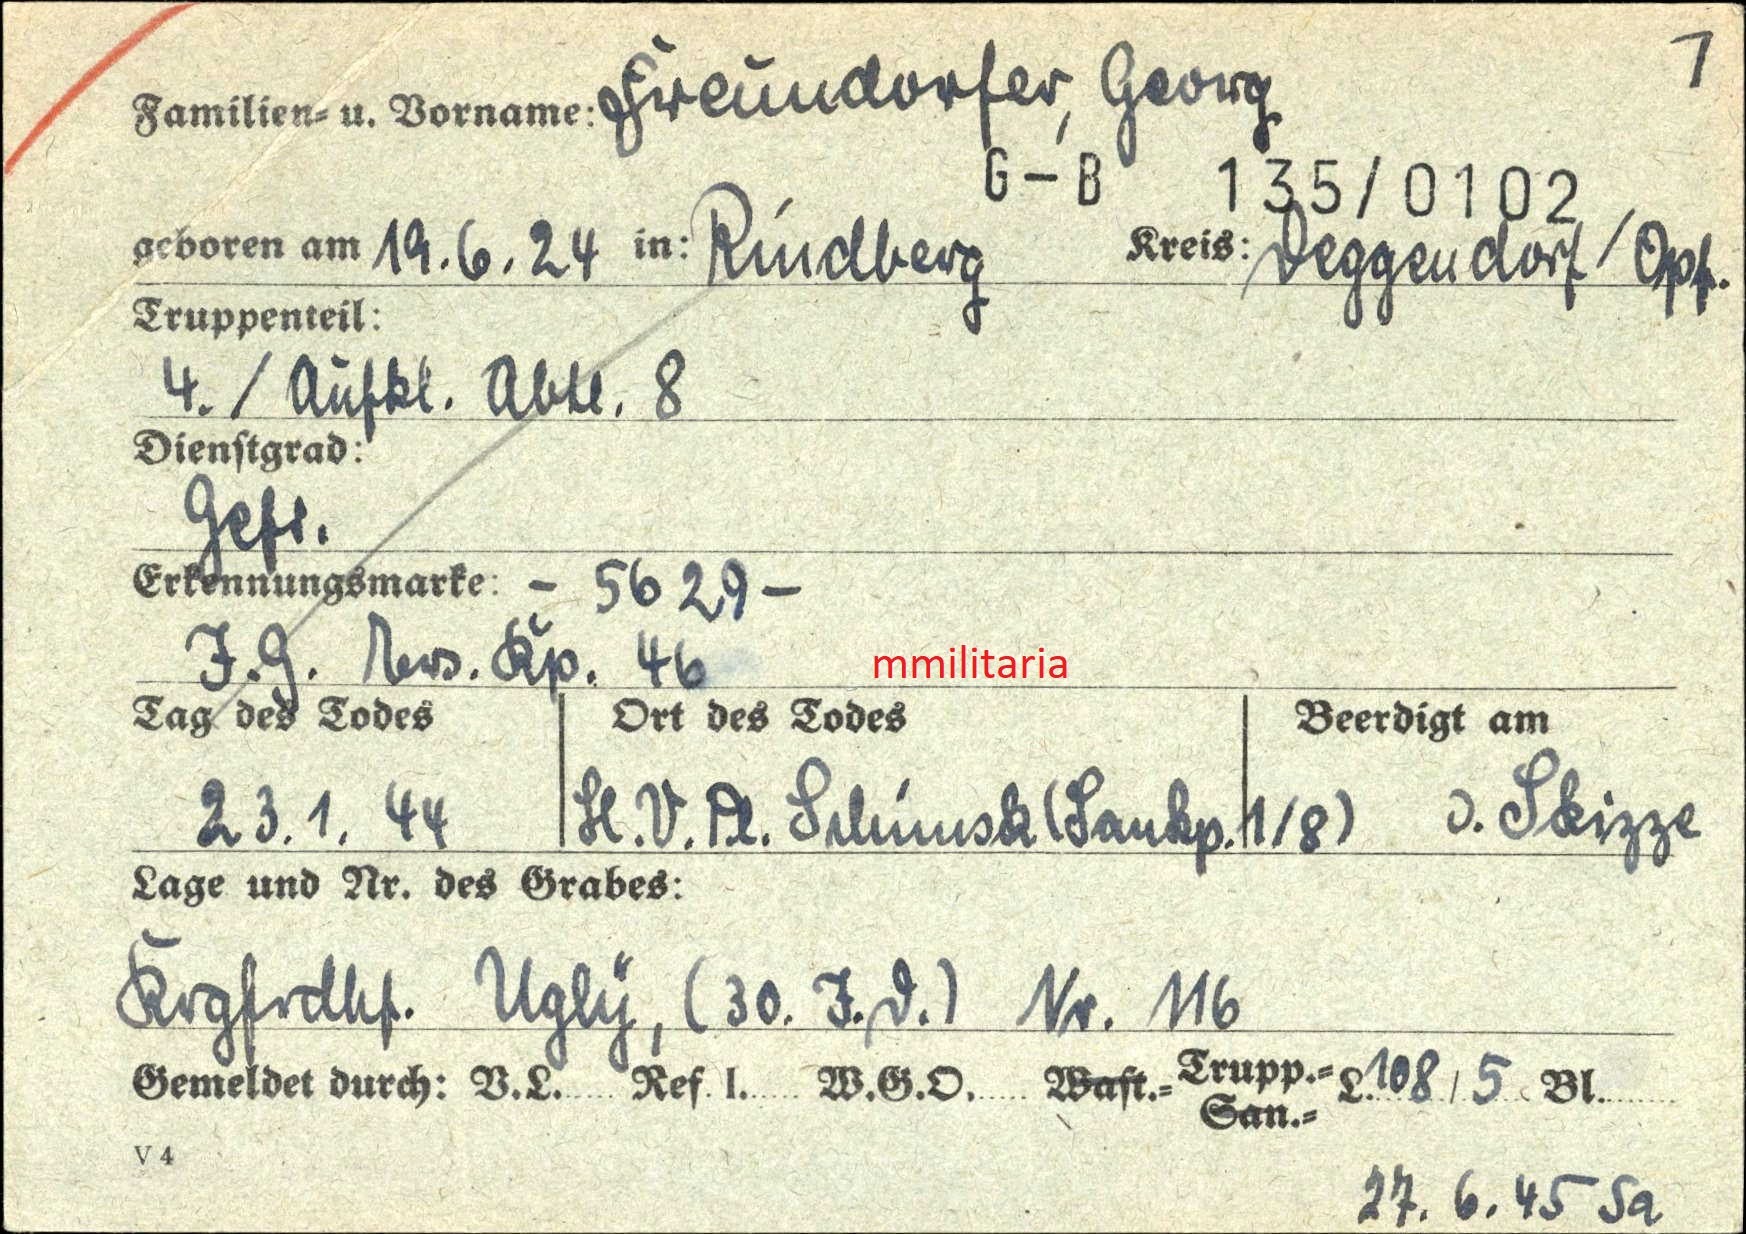 7
Familien- u. Vorname: Freundorfer, Georg
G-B 135/0102
geboren am 19.6.24 in: Rindberg Kreis: Deggendorf/Opf.
Truppenteil:
4./Aufkl. Abtl. 8
Dienstgrad:
Gefr.
Erkennungsmarke: - 5629 -
J.G. Ers. Kp. 46
mmilitaria
Tag des Todes Ort des Todes Beerdigt am
23.1.44 H.V.Pl. (Sankp. 1/8) s. Skizze
Lage und Nr. des Grabes:
Krgfrdhf. Ugly, (30. J.D.) Nr. 116
Gemeldet durch: V.L. Ref. l. W.G.O. Wast.- Trupp.- L. 108/5 Bl.
San.-
V 4
27.6.45 Sa